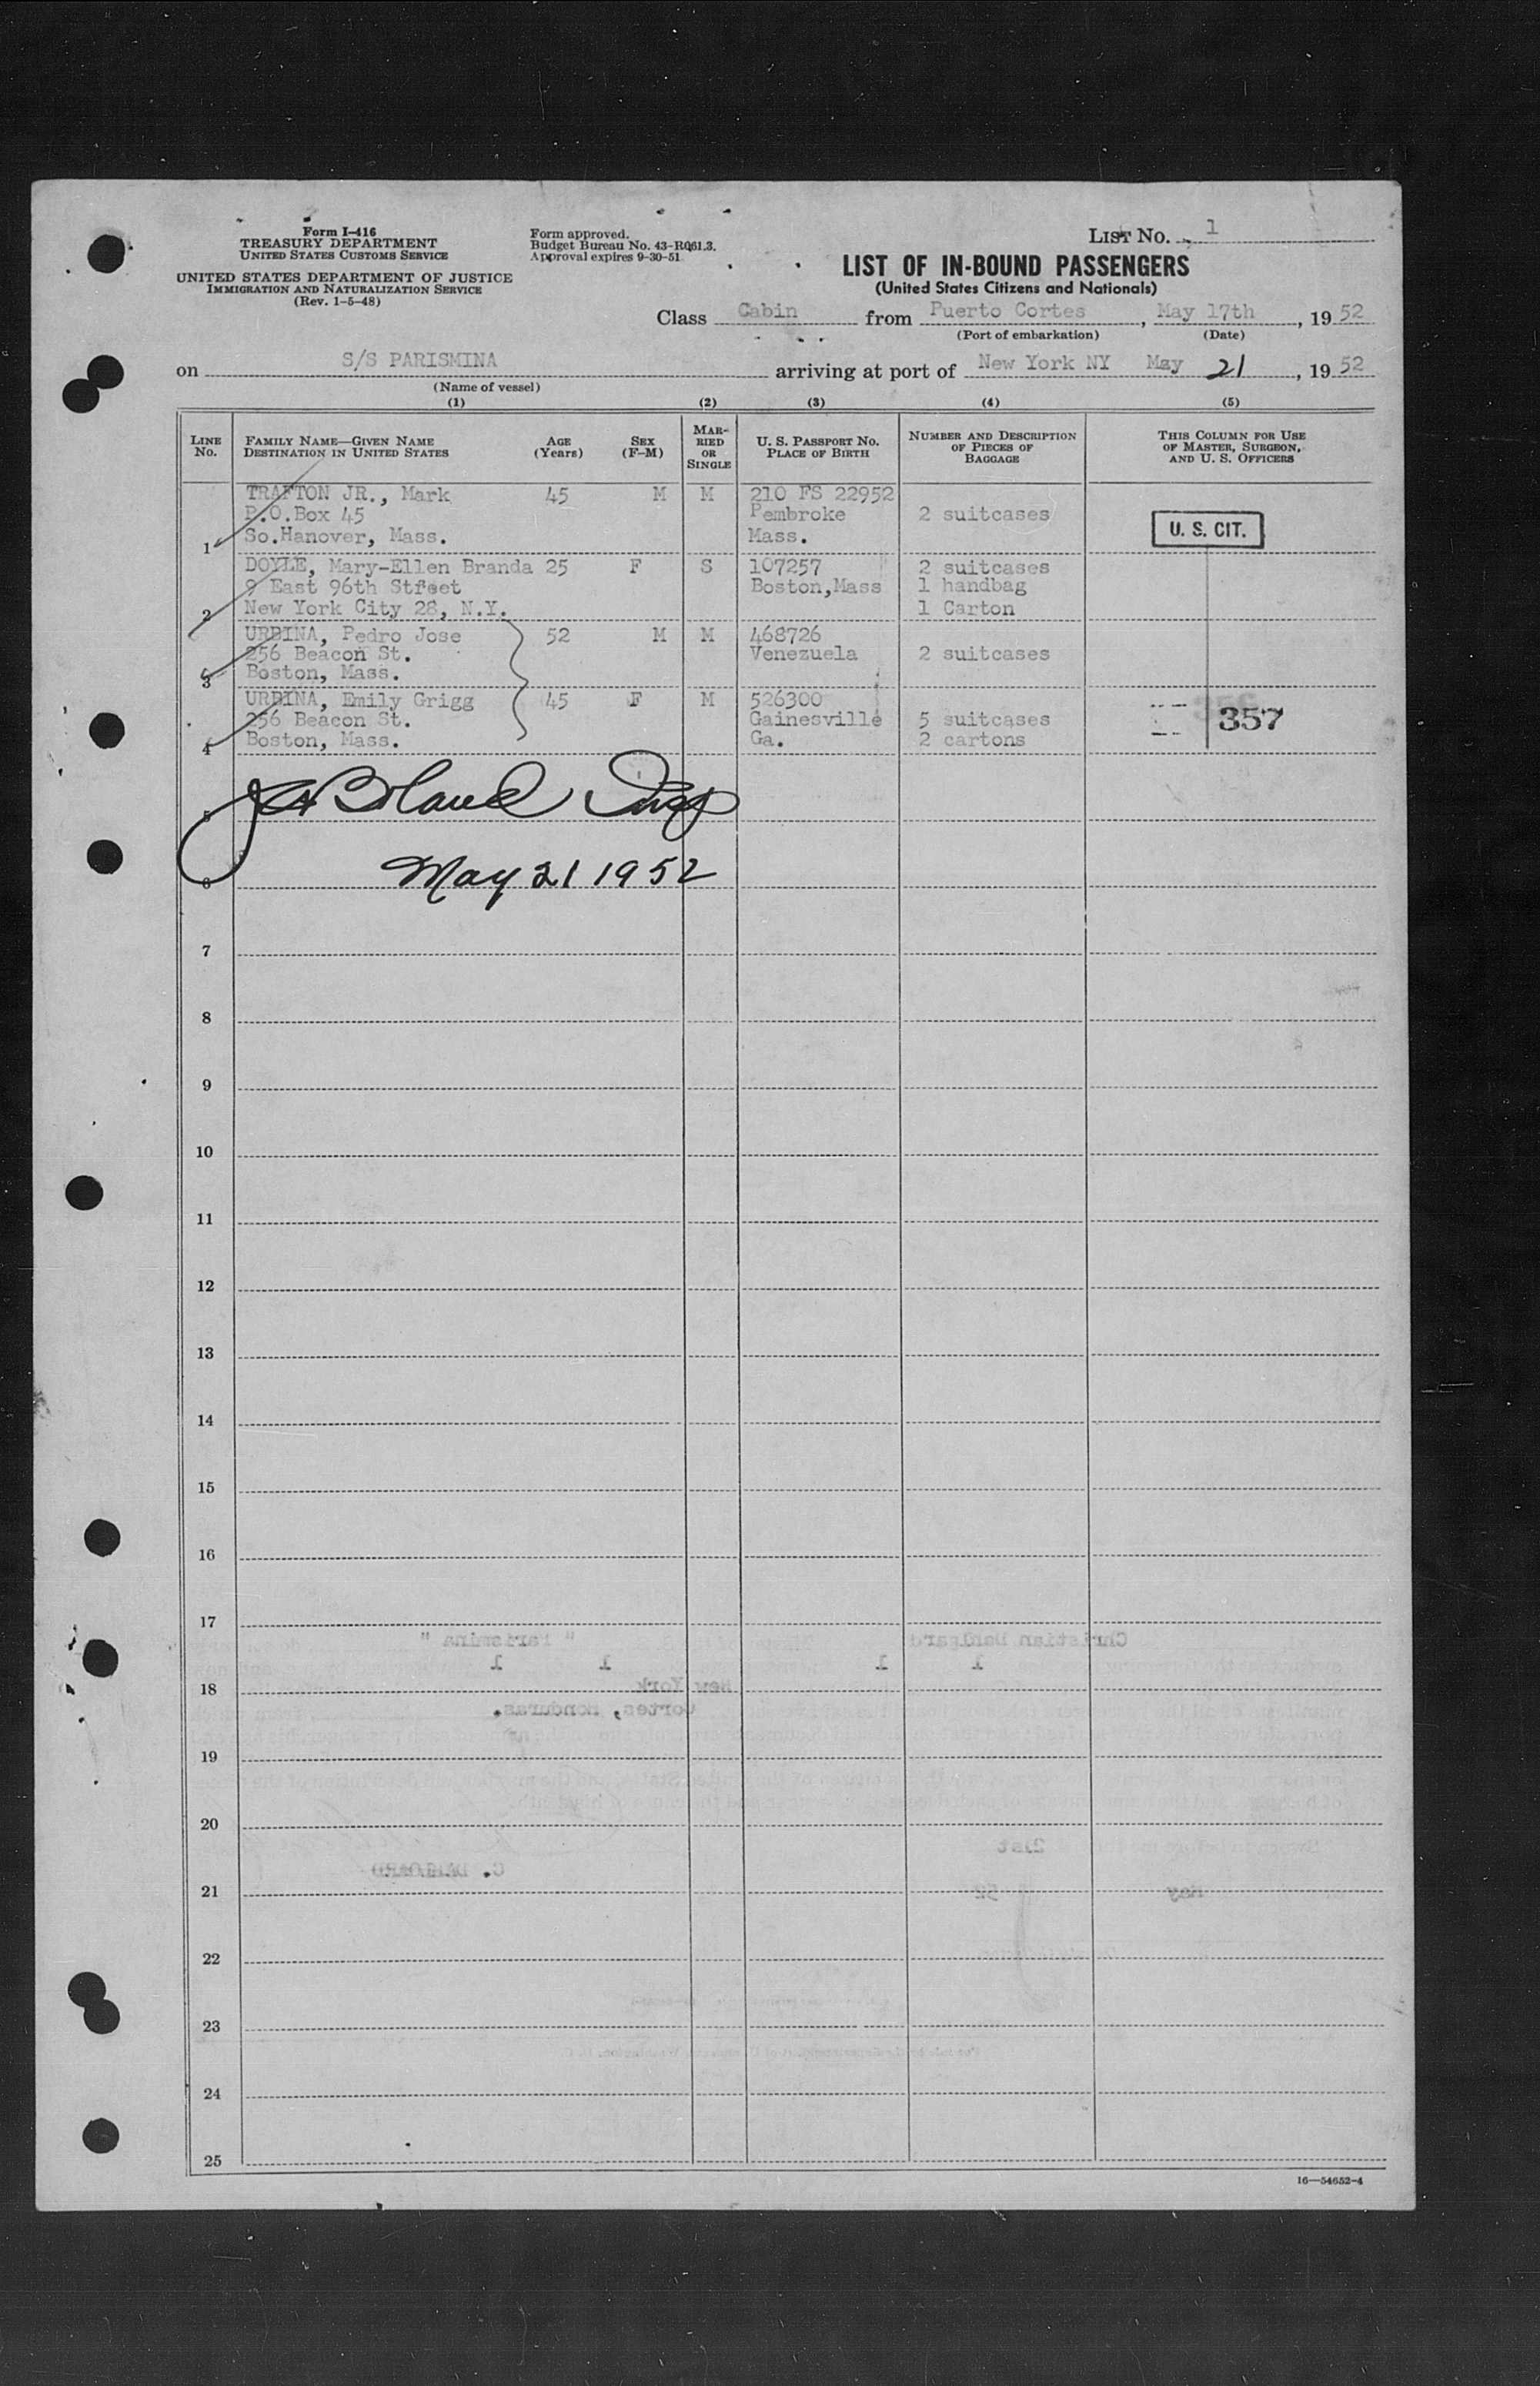 Form I-416
TREASURY DEPARTMENT
UNITED STATES CUSTOMS SERVICE
UNITED STATES DEPARTMENT OF JUSTICE
IMMIGRATION AND NATURALIZATION SERVICE
(Rev. 1-5-48)
Form approved.
Budget Bureau No. 43-R061.3.
Approval expires 9-30-51.
LIST No. 1
LIST OF IN-BOUND PASSENGERS
(United States Citizens and Nationals)
Class Cabin from Puerto Cortes, May 17th, 1952
(Port of embarkation) (Date)
on S/S PARISMINA arriving at port of New York NY May 21, 1952
(Name of vessel)
(1) (2) (3) (4) (5)
LINE No. FAMILY NAME—GIVEN NAME DESTINATION IN UNITED STATES AGE (Years) SEX (F-M) MARRIED OR SINGLE U. S. PASSPORT No. PLACE OF BIRTH NUMBER AND DESCRIPTION OF PIECES OF BAGGAGE THIS COLUMN FOR USE OF MASTER, SURGEON, AND U. S. OFFICERS
TRAFTON JR., Mark 45 M M 210 FS 22952
P.O.Box 45 Pembroke 2 suitcases
1 So.Hanover, Mass. Mass. U. S. CIT.
DOYLE, Mary-Ellen Branda 25 F S 107257 2 suitcases
9 East 96th Street Boston,Mass 1 handbag
2 New York City 28, N.Y. 1 Carton
URBINA, Pedro Jose 52 M M 468726
256 Beacon St. Venezuela 2 suitcases
3 Boston, Mass.
URBINA, Emily Grigg 45 F M 526300
256 Beacon St. Gainesville 5 suitcases 357
4 Boston, Mass. Ga. 2 cartons
5 Boland Insp
6 May 21 1952
7
8
9
10
11
12
13
14
15
16
17
18
19
20
21
22
23
24
25
16—54652-4